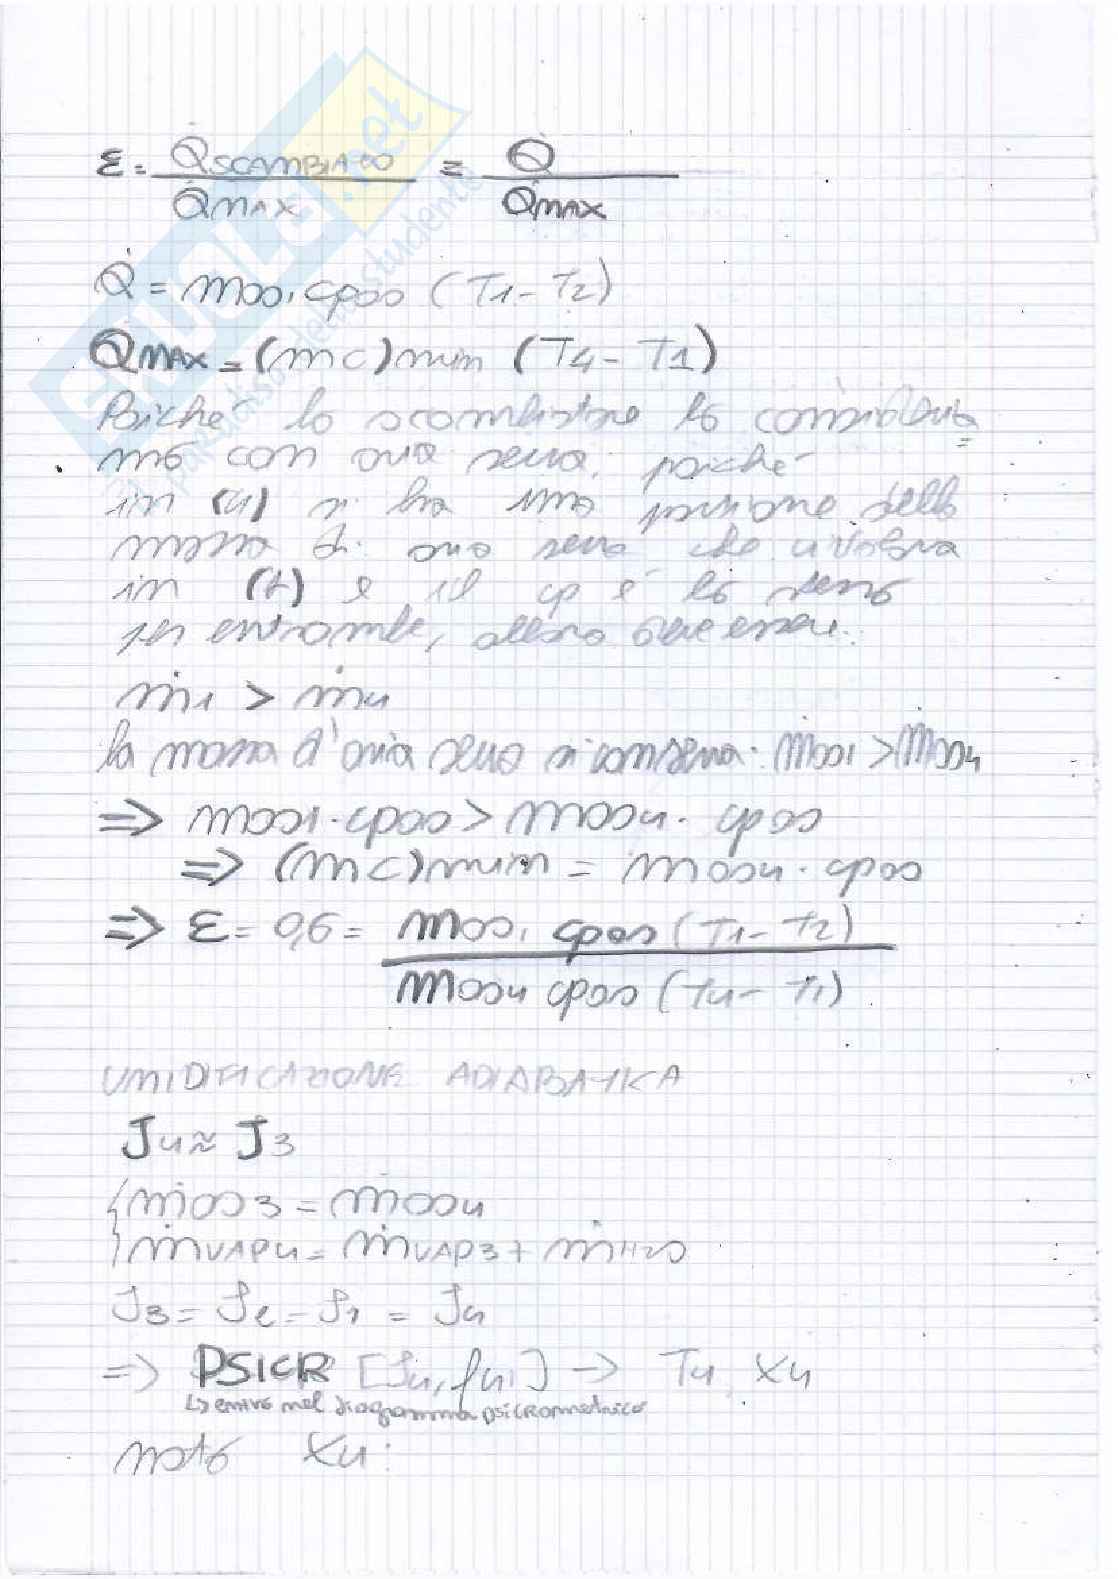 ε = Q̇SCAMBIATO / Q̇MAX = Q̇ / Q̇MAX
Q̇ = ṁas1 cpas (T1 - T2)
Q̇MAX = (ṁc)min (T4 - T1)
Poiché lo scambiatore lo consideria
mo con aria secca, poiché
in (4) si ha una porzione della
massa di aria secca che
in (1) e il cp è lo stesso
per entrambe, allora deve essere:
ṁ1 > ṁ4
la massa d'aria secca si conserva: ṁas1 > ṁas4
⇒ ṁas1·cpas > ṁas4· cpas
⇒ (ṁc)min = ṁas4 · cpas
⇒ ε = 0,6 = ṁas1 cpas (T1 - T2) / ṁas4 cpas (T4 - T1)
UMIDIFICAZIONE ADIABATICA
J4 ≈ J3
{ ṁas3 = ṁas4
ṁVAP4 = ṁVAP3 + ṁH2O
J3 = J2 = J1 = J4
⇒ PSICR [J4, φ4] → T4, X4
↳ entro nel diagramma psicrometrico
noto X4:
SKUOLA.net
il paradiso dello studente